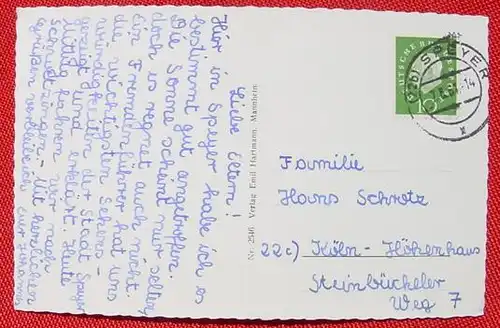 Liebe Eltern!
Hier in Speyer habe ich es
bestimmt gut angetroffen.
Die Sonne scheint nur selten,
doch es regnet auch nicht.
Ein Fremdenführer hat uns
die wichtigsten Sehens-
würdigkeiten der Stadt Speyer
gezeigt und erklärt. Heute
Mittag fahren wir nach
Schwetzingen. - Mit herzlichen
Grüßen verbleibe ich
Euer Johannes
Nr. 2546 Verlag Emil Hartmann, Mannheim
DEUTSCHE
10
SPEYER
Familie
Hans Schrotz
22c) Köln-Höhenhaus
Steinbücheler
Weg 7